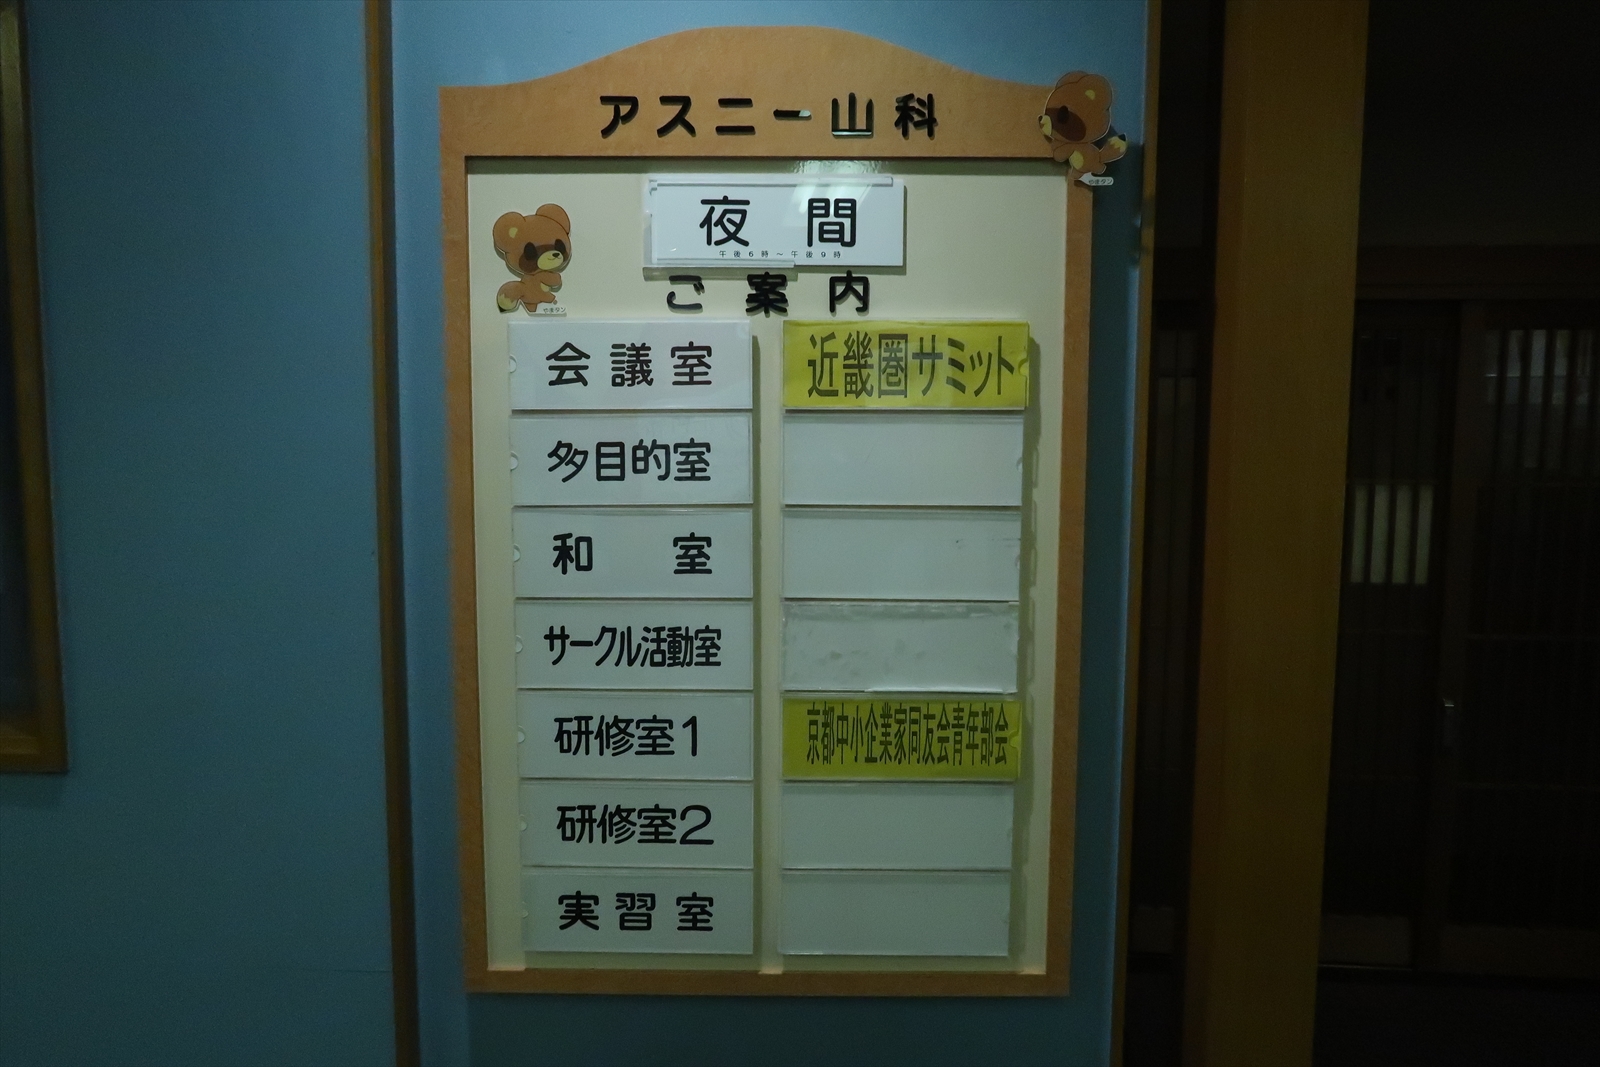 アスニー山科
夜間
午後6時～午後9時
ご案内
会議室 近畿圏サミット
多目的室
和室
サークル活動室
研修室1 京都中小企業家同友会青年部会
研修室2
実習室
やまタン
やまタン